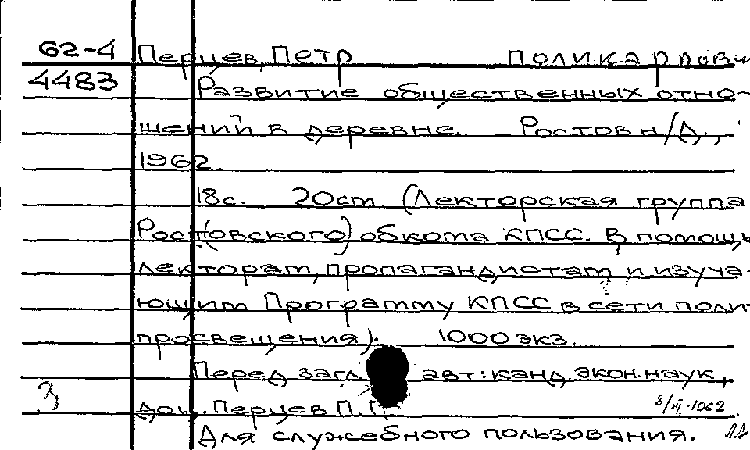 62-4 Перцев, Петр Поликарпови
4483 Развитие общественных отно-
шений в деревне. Ростов н/Д.,
1962.
18с. 20см (Лекторская группа
Рост(овского) обкома КПСС. В помощь
лекторам, пропагандистам и изуча-
ющим Программу КПСС в сети полит
просвещения). 1000 экз.
Перед загл. авт: канд. экон. наук,
доц. Перцев П.П.
Для служебного пользования.